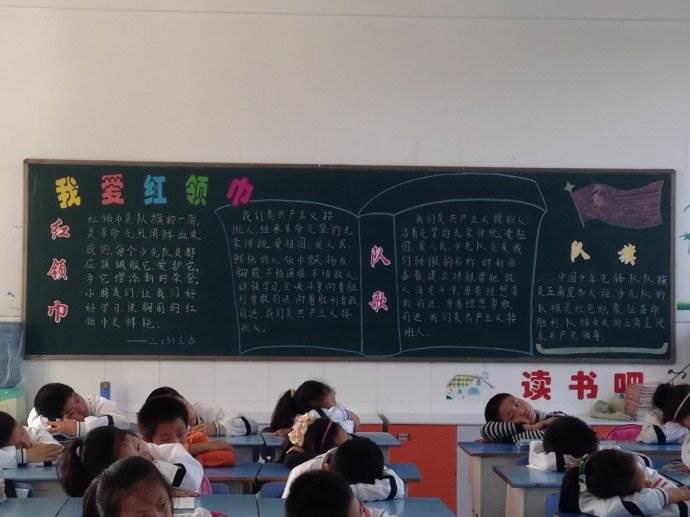 我爱红领巾
红领巾
红领巾是队旗的一角,
是革命先烈用鲜血染
成的,每个少先队员都
应该佩服它,爱护它,
为它增添新的荣誉,
小朋友们,让我们好
好学习,使胸前的红
领巾更鲜艳。
——三(5)主办
我们是共产主义接
班人,继承革命先辈的光
荣传统,爱祖国,爱人民,
鲜艳的红领巾飘扬在
胸前,不怕困难,不怕敌人,
顽强学习,坚决斗争,向着胜
利勇敢前进,向着胜利勇敢
前进,我们是共产主义接
班人。
队歌
我们是共产主义接班人
沿着光荣的先辈传统,爱祖
国,爱人民,少先队员是我
们骄傲的名称,时刻准
备着,建立功勋,要把敌
人消灭干净,为着理想勇
敢前进,为着理想勇敢
前进,我们是共产主义接
班人。
队旗
中国少年先锋队队旗
是五角星加火炬,少先队的
队旗是红色的,象征革命
胜利,队旗中央的五角星代
表共产党领导。
读书吧